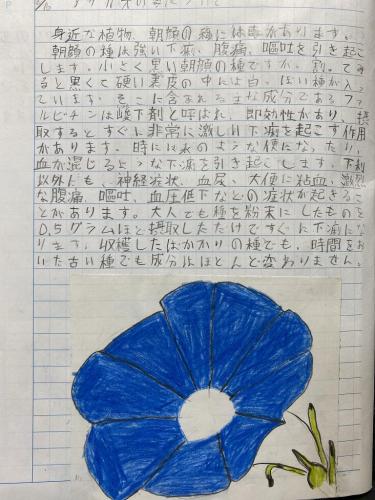 身近な植物、朝顔の種に体毒があります。
朝顔の種は強い下痢、腹痛、嘔吐を引き起こ
します。小さく黒い朝顔の種ですが、割ってみ
ると黒くて硬い表皮の中には白っぽい種が入っ
ています。そこに含まれる主な成分であるファ
ルビチンは峻下剤と呼ばれ、即効性があり、摂
取するとすぐに非常に激しい下痢を起こす作用
があります。時には水のような便になったり、
血が混じるような下痢を引き起こします。下痢
以外にも、神経症状、血尿、大便に粘血、激烈
な腹痛、嘔吐、血圧低下などの症状が起きるこ
とがあります。大人でも種を粉末にしたものを
0.5グラムほど摂取しただけですぐに下痢にな
ります。収穫したばかりの種でも、時間をお
いた古い種でも成分はほとんど変わりません。